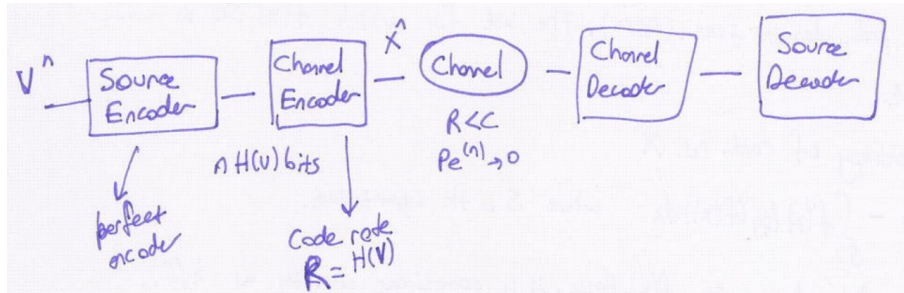 V^n
Source
Encoder
Channel
Encoder
X^n
Channel
Channel
Decoder
Source
Decoder
R<C
Pe^(n)→0
nH(V) bits
perfect
encoder
Code rate
R = H(V)